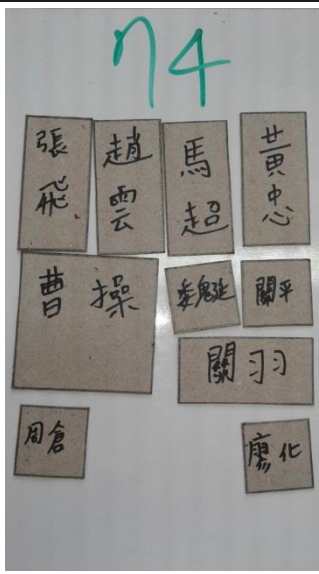 74
張飛 趙雲 馬超 黃忠
曹操 魏延 關平
關羽
周倉 廖化